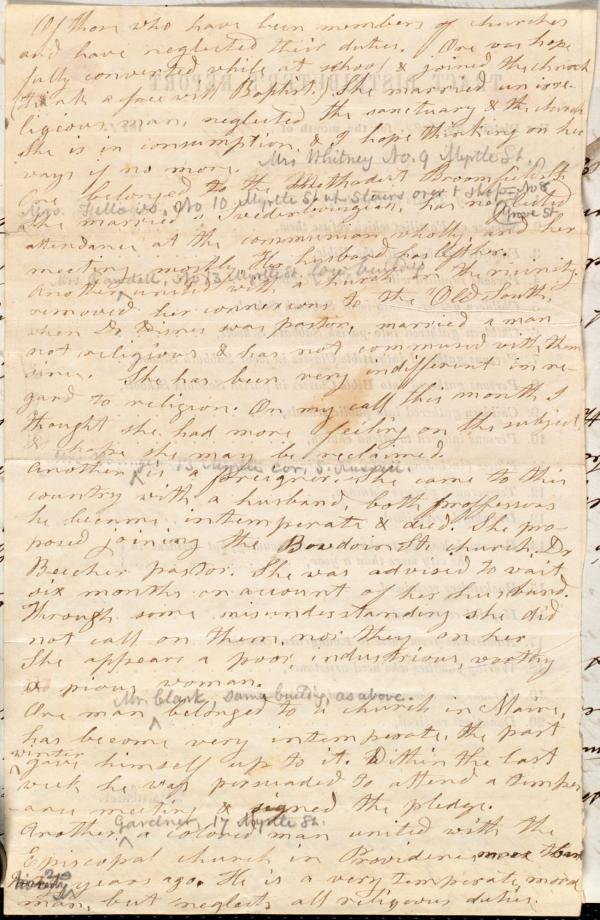 Of those who have been members of churches
and have neglected their duties. One was hope
fully converted while at school & joined the church
(think a free will Baptist.) She married an irre-
ligious man, neglected the sanctuary & the church
She is in consumption, & I hope thinking on her
ways if no more.
Mrs Whitney No. 9 Myrtle St.
One belonged to the Methodist Bromfield St.
Mrs. No 10 Myrtle St up Stairs over t shop No 8
Grove St
She married a Swedenborgian, has neglected
attendance at the communion wholly and her
meeting mostly. Her husband has left her.
Mrs No 13 Myrtle St. low building
Another united with a church in the vicinity
removed her connexions to the Old South,
when Dr Wisner was pastor, married a man
not religious & has not communed with them
since. She has been very indifferent in re-
gard to religion. On my call this month I
thought she had more feeling on the subject
& hope she may be reclaimed.
15 Myrtle cor. S. Russell.
Another is a foreigner. she came to this
country with a husband, both professors
he became intemperate & died. She pro-
posed joining the Bowdoin St. church, Dr
Beecher pastor. She was advised to wait
six months on account of her husband.
Through some misunderstanding she did
not call on them, nor they on her
She appears a poor industrious, worthy
& pious woman.
Mr. Clark, same building, as above.
One man belonged to a church in Maine,
has become very intemperate, the past
winter
gave himself up to it. Within the last
week he was persuaded to attend a temper
ance meeting & signed the pledge.
Gardner, 17 Myrtle St.
Another a colored man united with the
Episcopal church in Providence more than
20
years ago. He is a very temperate, moral
man, but neglects all religious duties.